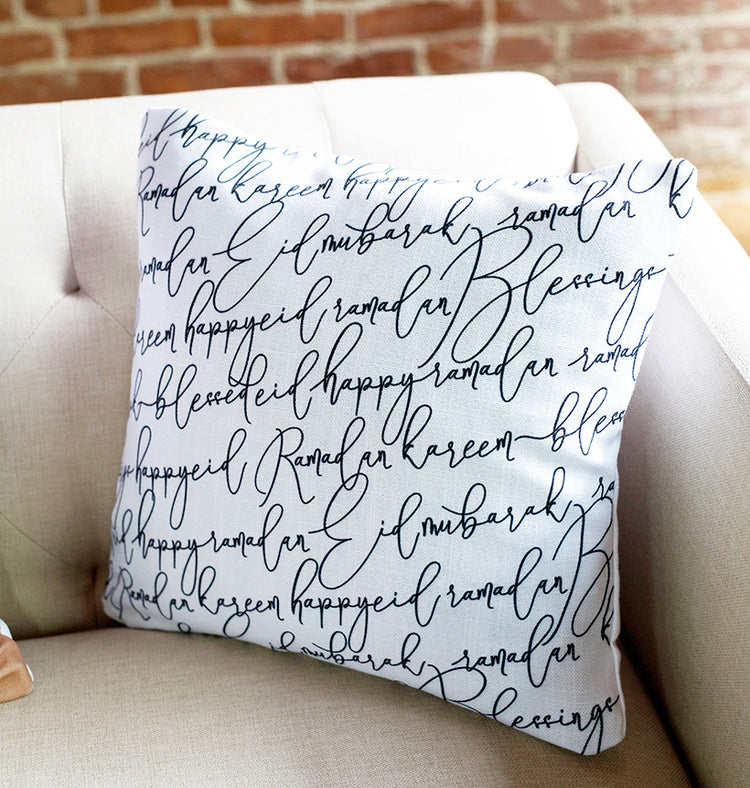 eid happy
Ramadan kareem happyeid
ramadan Eid mubarak ramadan k
kareem happyeid ramadan Blessings
blessedeid happy ramadan ramad
happyeid Ramadan kareem bless
eid happy ramadan Eid mubarak ra
Ramadan kareem happyeid ramadan B
mubarak ramadan k
Blessings